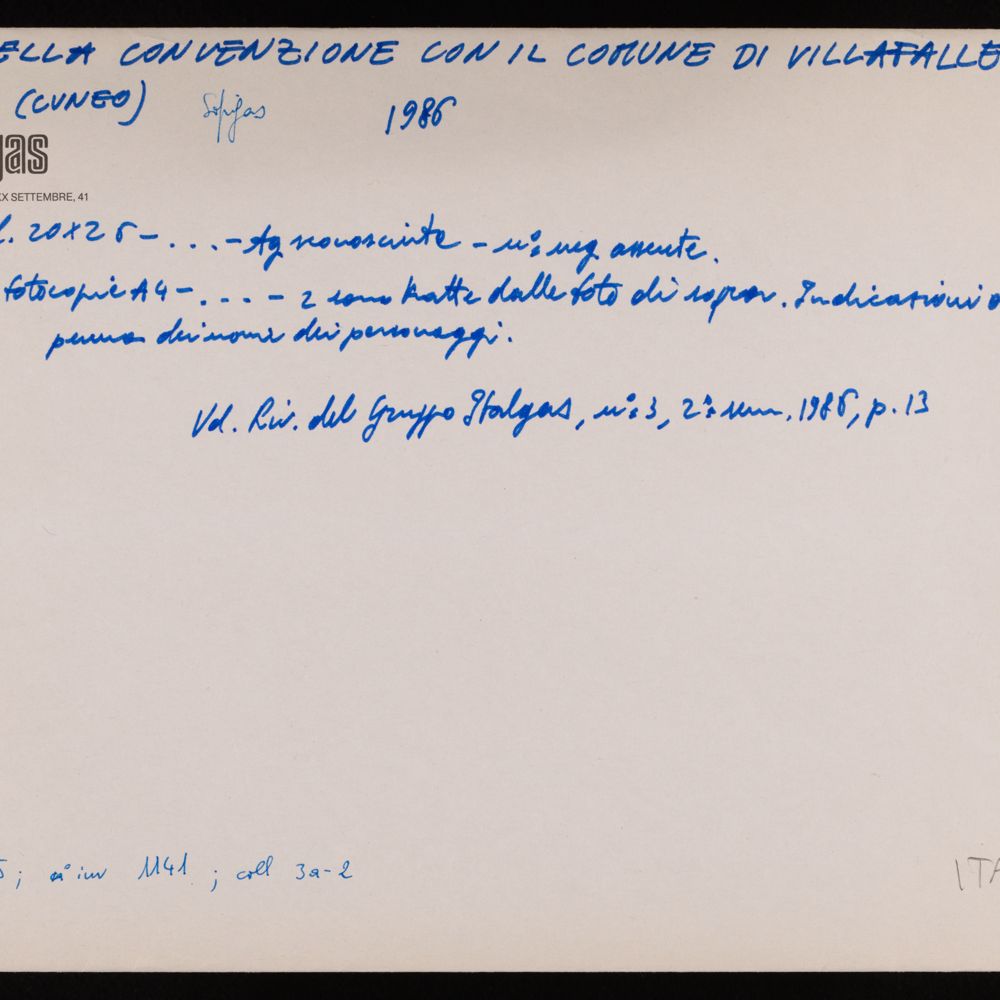 ELLA CONVENZIONE CON IL COMUNE DI VILLAFALLE
(CUNEO) Sofigas 1986
gas
XX SETTEMBRE, 41
. 20x25 - ... - Ag sconosciute - n° neg assente.
fotocopie A4 - ... - 2 sono tratte dalle foto di sopra. Indicazioni a
penna dei nomi dei personaggi.
Vd. Riv. del Gruppo Italgas, n° 3, 2° sem. 1986, p. 13
; n° inv 1141 ; coll 3a-2
ITA